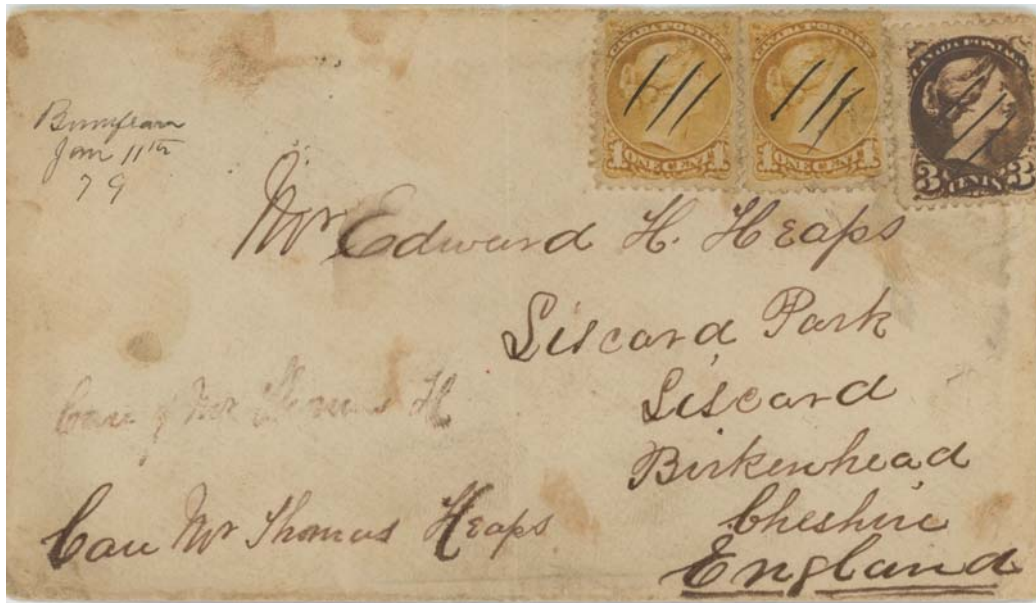 CANADA POSTAGE
ONE CENT
1 1
CANADA POSTAGE
ONE CENT
1 1
CANADA POSTAGE
3 CENTS 3
Jan 11th
79
Mr Edward H. Heaps
Liscard Park
Liscard
Birkenhead
Cheshire
England
Care of Mr Thomas H
Care Mr Thomas Heaps